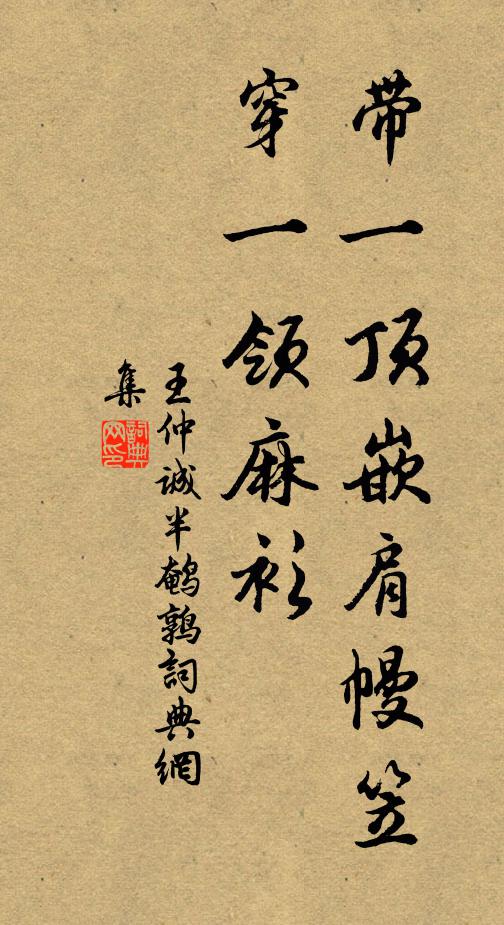 带一顶嵌肩幔笠
穿一领麻衫
王仲诚半鹌鹑詞典網
集
詞典
网印